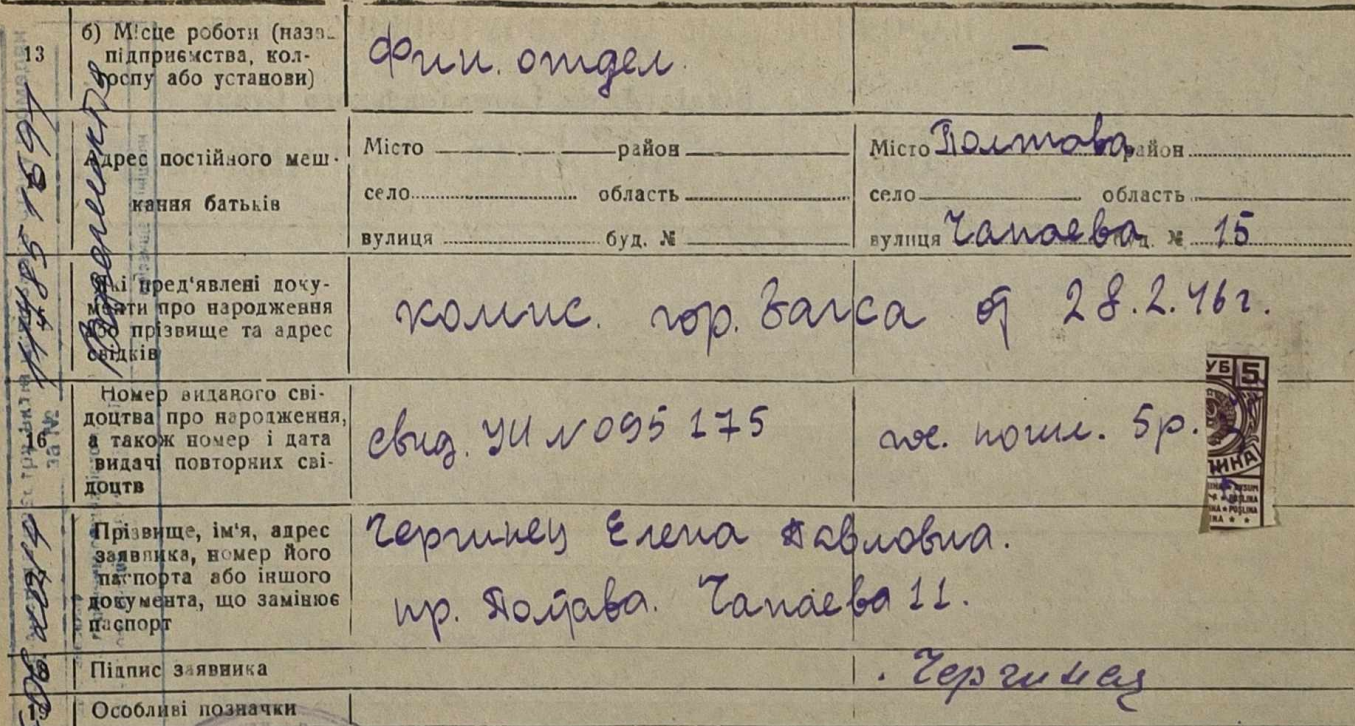 13 б) Місце роботи (назва підприємства, колгоспу або установи) Фин. отдел. —
Адрес постійного мешкання батьків
Місто район Місто Полтава район
село область село область
вулиця буд. № вулиця Чапаева буд. № 15
Які пред'явлені документи про народження або прізвище та адрес свідків комис. гор. Загса от 28.2.46 г.
16 Номер виданого свідоцтва про народження, а також номер і дата видачі повторних свідоцтв свид. УИ № 095175 пошл. 5 р.
УБ 5
Прізвище, ім'я, адрес заявника, номер його паспорта або іншого документа, що замінює паспорт Чергинец Елена Павловна.
пр. Полтава. Чапаева 11.
Підпис заявника Чергинец
19 Особливі позначки